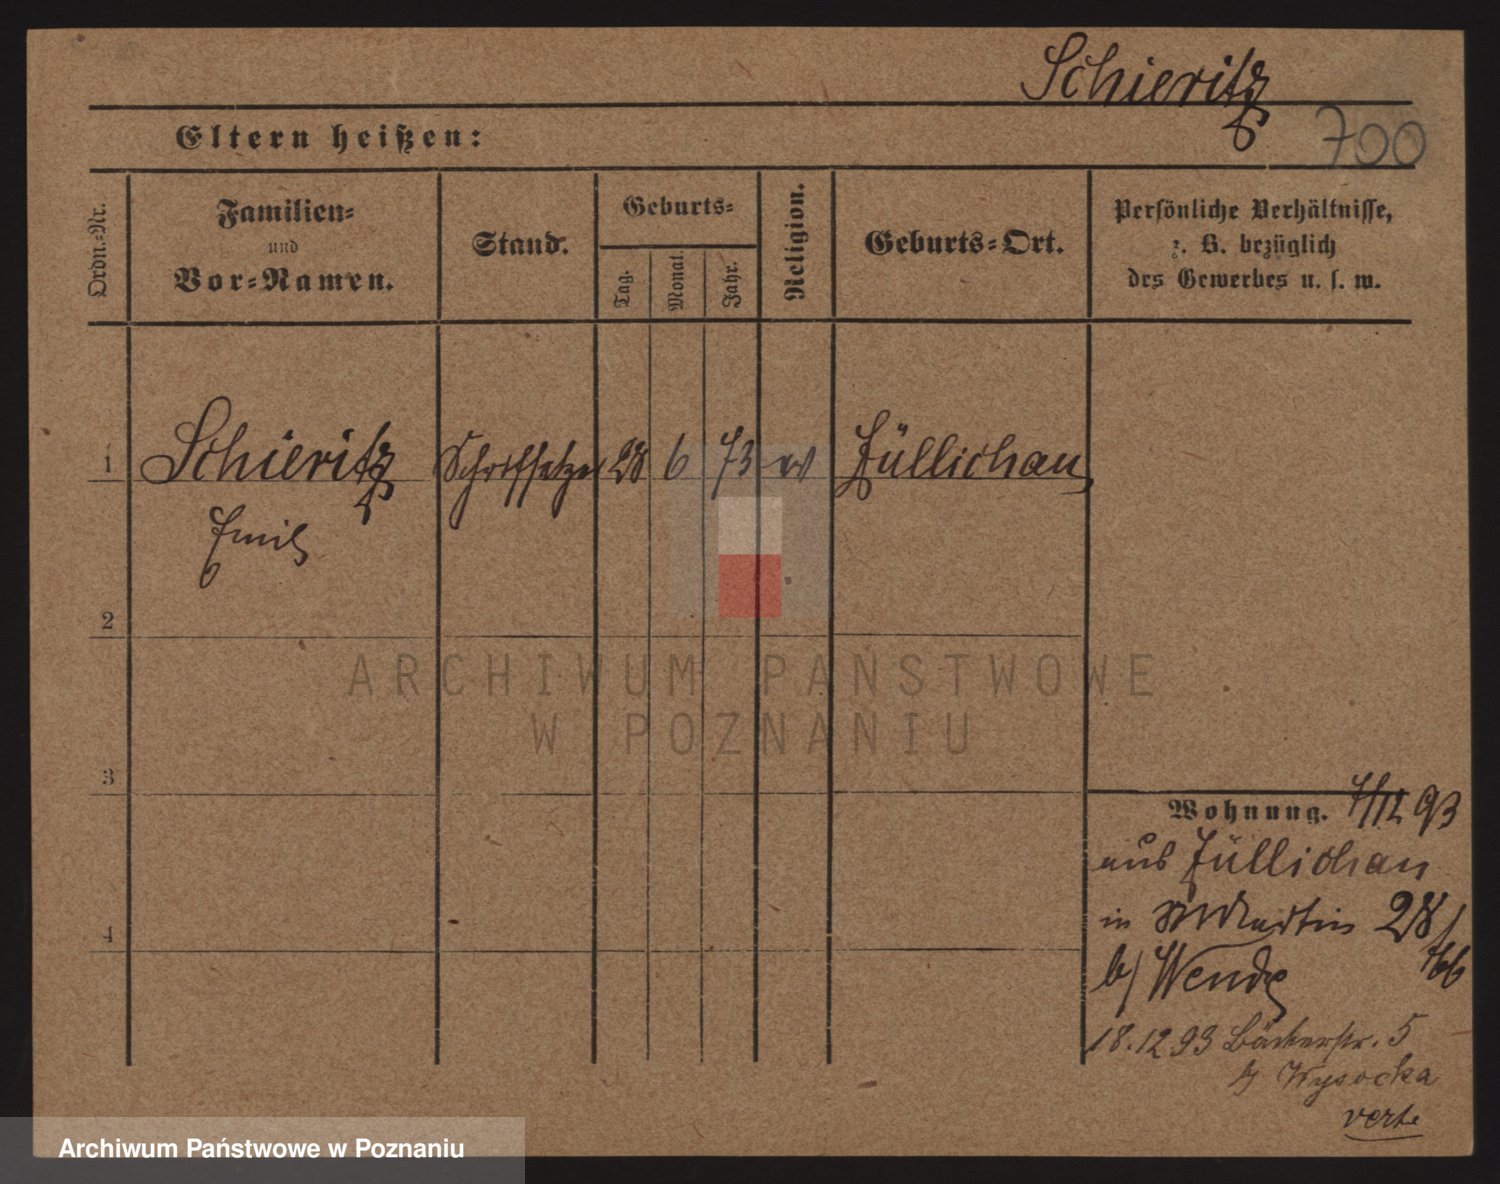 Schieritz
Eltern heißen:
700
Ordn.-Nr.
Familien-
und
Vor-Namen.
Stand.
Geburts-
Tag.
Monat.
Jahr.
Religion.
Geburts-Ort.
Persönliche Verhältnisse,
z. B. bezüglich
des Gewerbes u. s. w.
1 Schieritz Schriftsetzer 28 6 73 ev Züllichau
Emil
2
ARCHIWUM PAŃSTWOWE
W POZNANIU
3
Wohnung. 7/12 93
aus Züllichau
in St Martin 28/
b/ Wende
18.12 93 Bäckerstr. 5
b/ Wysocka
verte
4
Archiwum Państwowe w Poznaniu